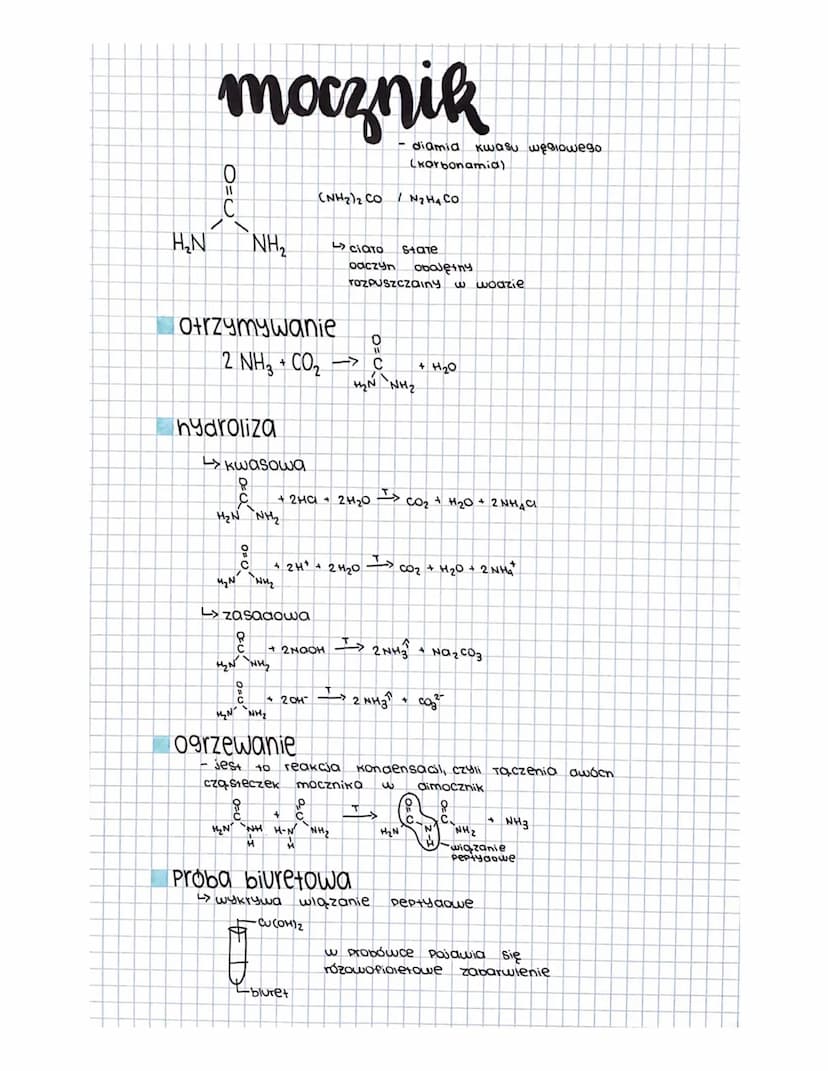 mocznik
- diamid kwasu węglowego
(karbonamid)
O
||
C
H₂N NH₂
(NH₂)₂CO / N₂H₄CO
↳ ciało stałe
odczyn obojętny
rozpuszczalny w wodzie
otrzymywanie
O
||
2 NH₃ + CO₂ → C + H₂O
H₂N NH₂
hydroliza
↳ kwasowa
O
||
C + 2HCl + 2H₂O T→ CO₂ + H₂O + 2NH₄Cl
H₂N NH₂
O
||
C + 2H⁺ + 2H₂O T→ CO₂ + H₂O + 2NH₄⁺
H₂N NH₂
↳ zasadowa
O
||
C + 2NaOH T→ 2NH₃↑ + Na₂CO₃
H₂N NH₂
O
||
C + 2OH⁻ T→ 2NH₃↑ + CO₃²⁻
H₂N NH₂
ogrzewanie
- jest to reakcja kondensacji, czyli łączenia dwóch
cząsteczek mocznika w dimocznik
O O O O
|| || || ||
C + C T→ C C + NH₃
H₂N NH H-N NH₂ H₂N N NH₂
H H H
wiązanie
peptydowe
próba biuretowa
↳ wykrywa wiązanie peptydowe
Cu(OH)₂
w probówce pojawia się
różowofioletowe zabarwienie
biuret